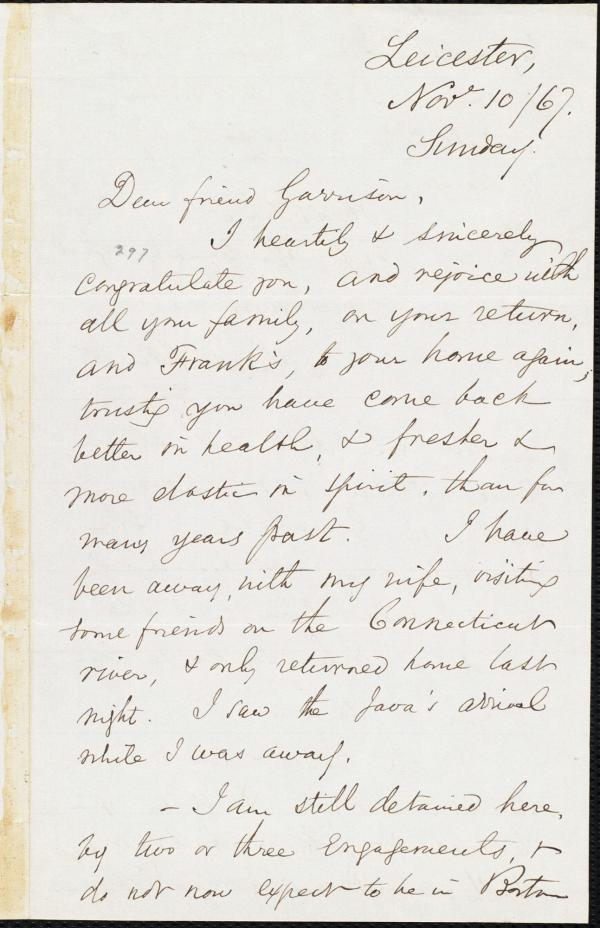 Leicester,
Nov. 10/67.
Sunday.
Dear friend Garrison,
I heartily & sincerely
297
congratulate you, and rejoice with
all your family, on your return,
and Frank's, to your home again;
trusting you have come back
better in health, & fresher &
more elastic in spirit, than for
many years past. I have
been away, with my wife, visiting
some friends on the Connecticut
river, & only returned home last
night. I saw the Java's arrival
while I was away.
– I am still detained here,
by two or three engagements, &
do not now expect to be in Boston